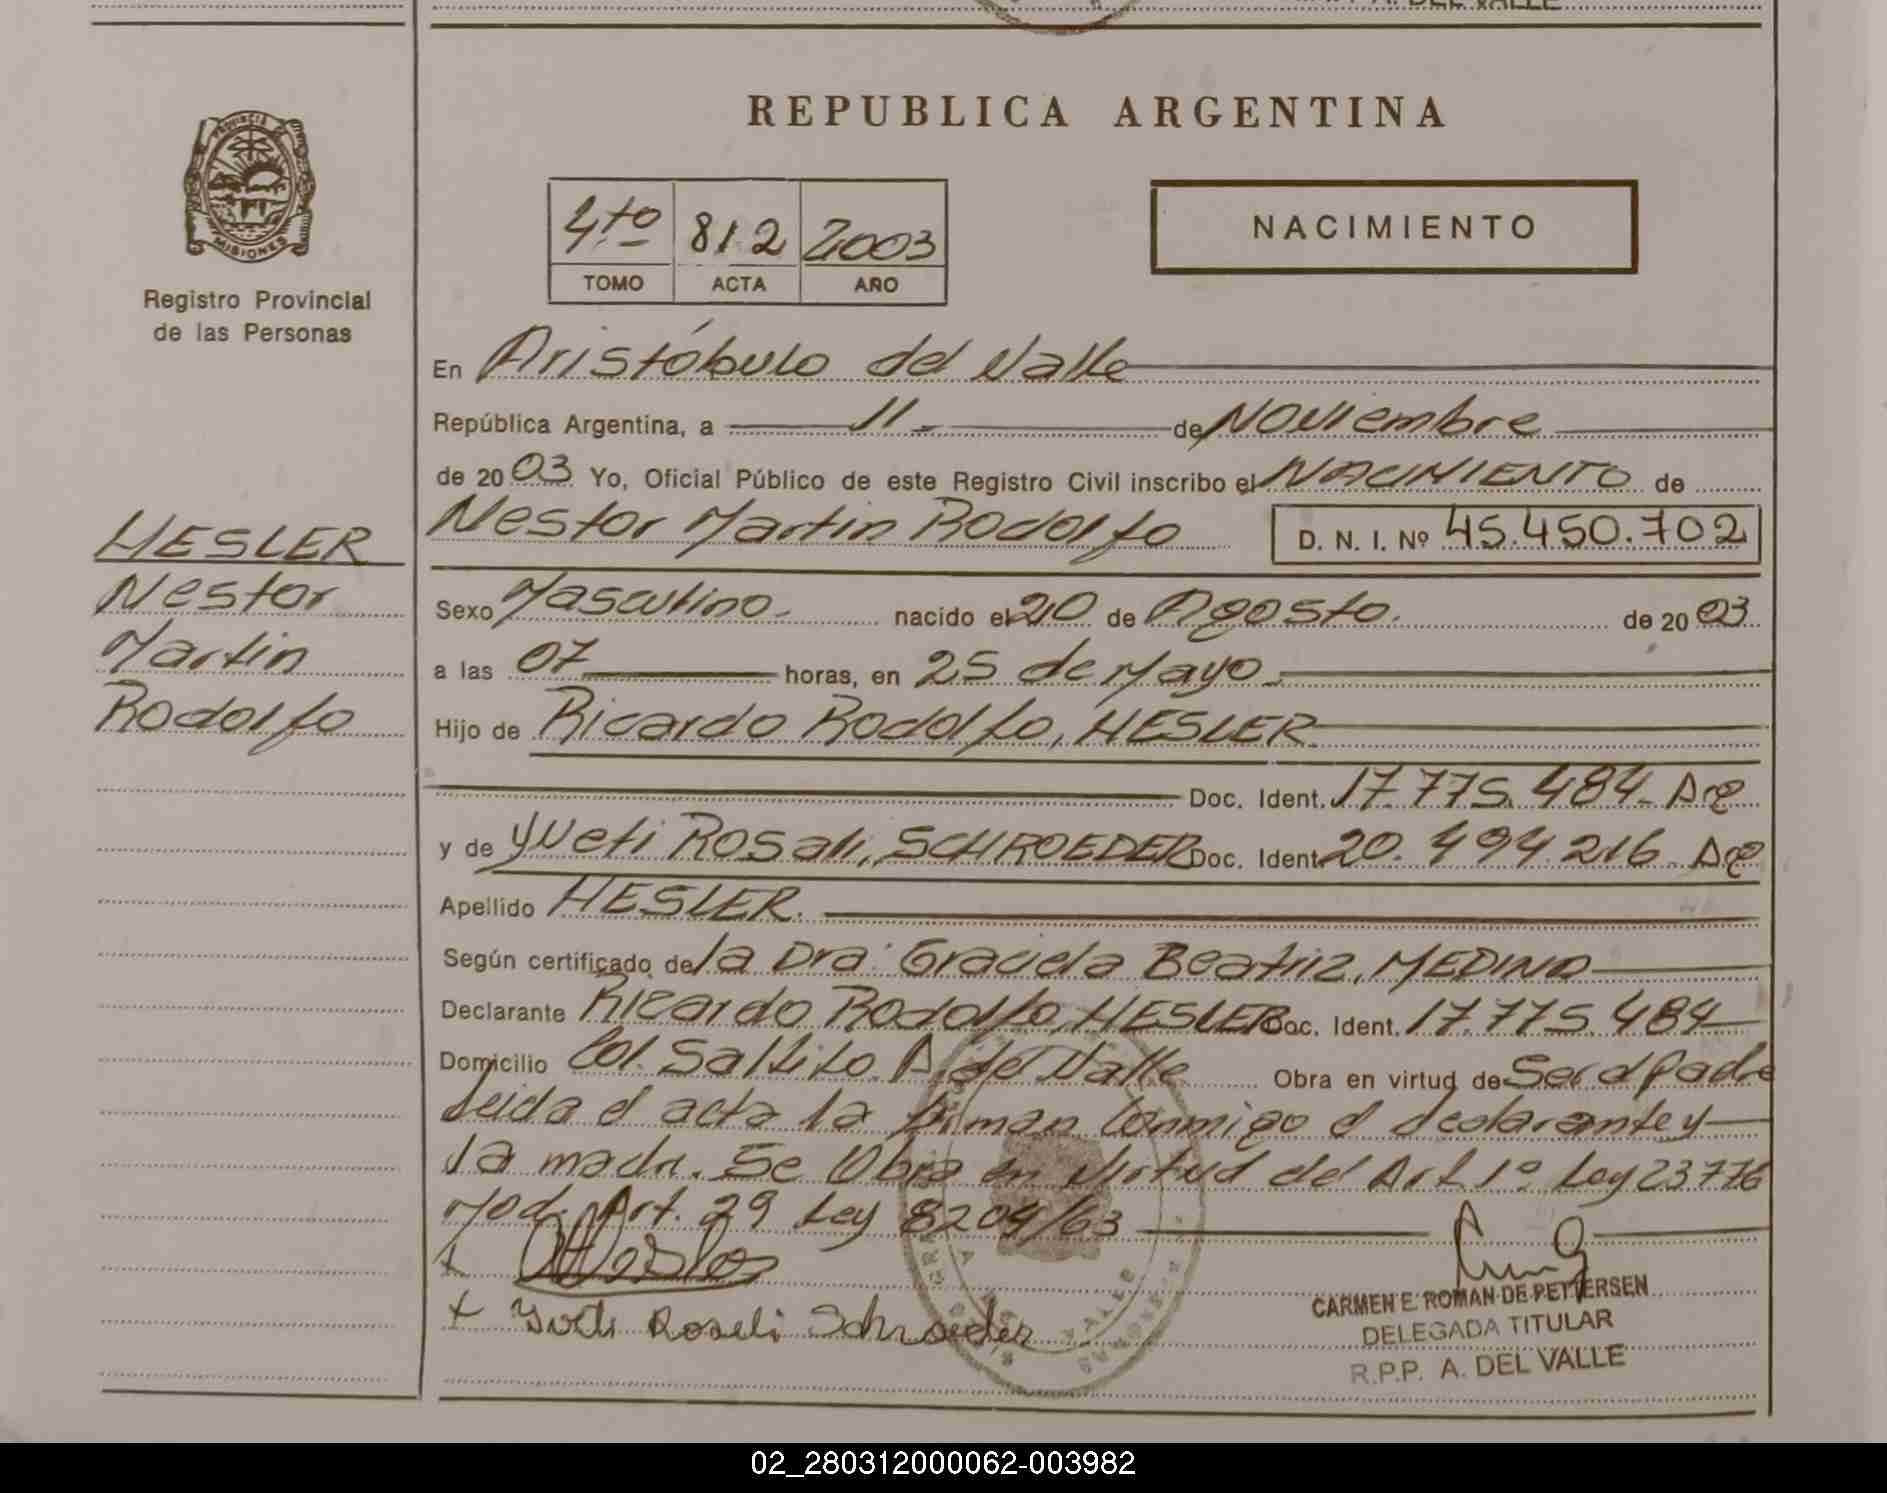 REPUBLICA ARGENTINA
PROVINCIA
MISIONES
Registro Provincial
de las Personas
4to 812 2003
TOMO ACTA AÑO
NACIMIENTO
En Aristóbulo del Valle
República Argentina, a 11 de Noviembre
de 2003 Yo, Oficial Público de este Registro Civil inscribo el NACIMIENTO de
Nestor Martin Rodolfo D. N. I. Nº 45.450.702
HESLER
Nestor
Martin
Rodolfo
Sexo Masculino. nacido el 20 de Agosto. de 2003
a las 07 horas, en 25 de Mayo
Hijo de Ricardo Rodolfo, HESLER
Doc. Ident. 17.775.484
y de Yveti Rosali, SCHROEDER Doc. Ident. 20.494.216
Apellido HESLER.
Según certificado de la Dra: Graciela Beatriz, MEDINA
Declarante Ricardo Rodolfo, HESLER Doc. Ident. 17.775.484
Domicilio Col. Saltito A. del Valle Obra en virtud de Ser el Padre
Leida el acta la firman conmigo el declarante y
la madre. Se Obra en virtud del Art 1º Ley 23776
Mod. Art. 29 Ley 8204/63
x
x Yveti Roseli Schroeder
CARMEN E. ROMAN DE PETTERSEN
DELEGADA TITULAR
R.P.P. A. DEL VALLE
02_280312000062-003982